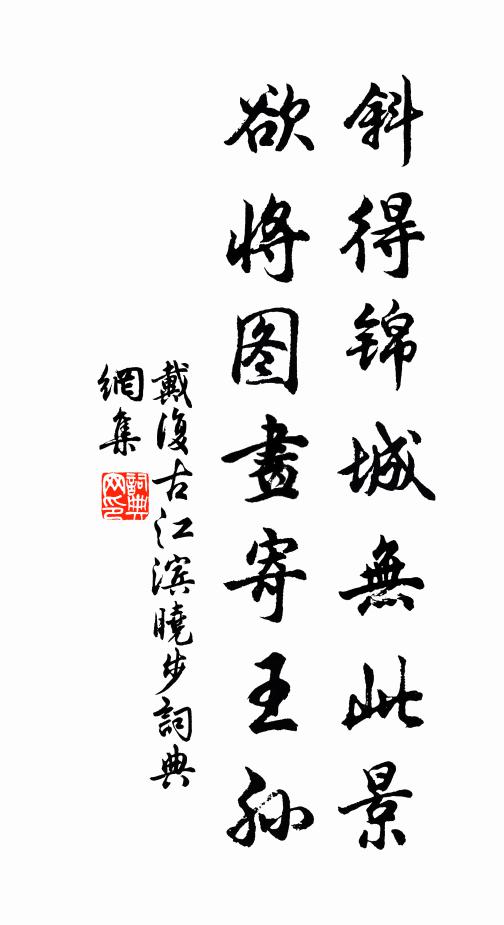 斜得锦城無此景
欲将图畫寄王孙
戴復古江滨曉步詞典
網集
詞典
网印